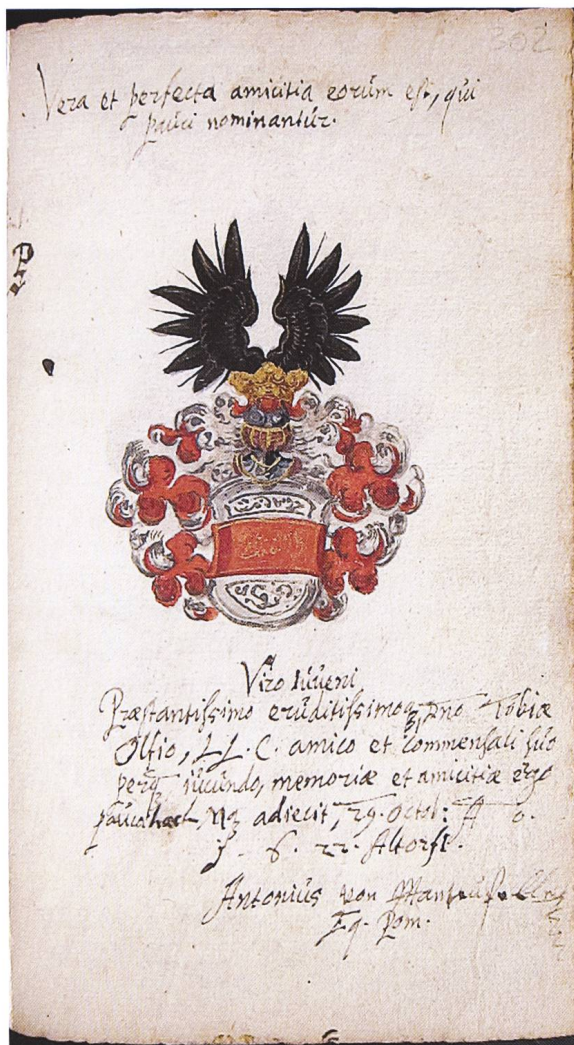 302
Vera et perfecta amicitia eorum est, qui
pauci nominantur.
Viro Iuveni
Præstantissimo eruditissimoq3, Dno Tobiæ
Olfio, LL. C. amico et commensali suo
perq3 iucundo, memoriæ et amicitiæ ergo
pauca hæc adiecit, 29. Octob: A o.
1. 6. 22. Altorfi.
Antonius von Manteuffell
Eq. Pom.